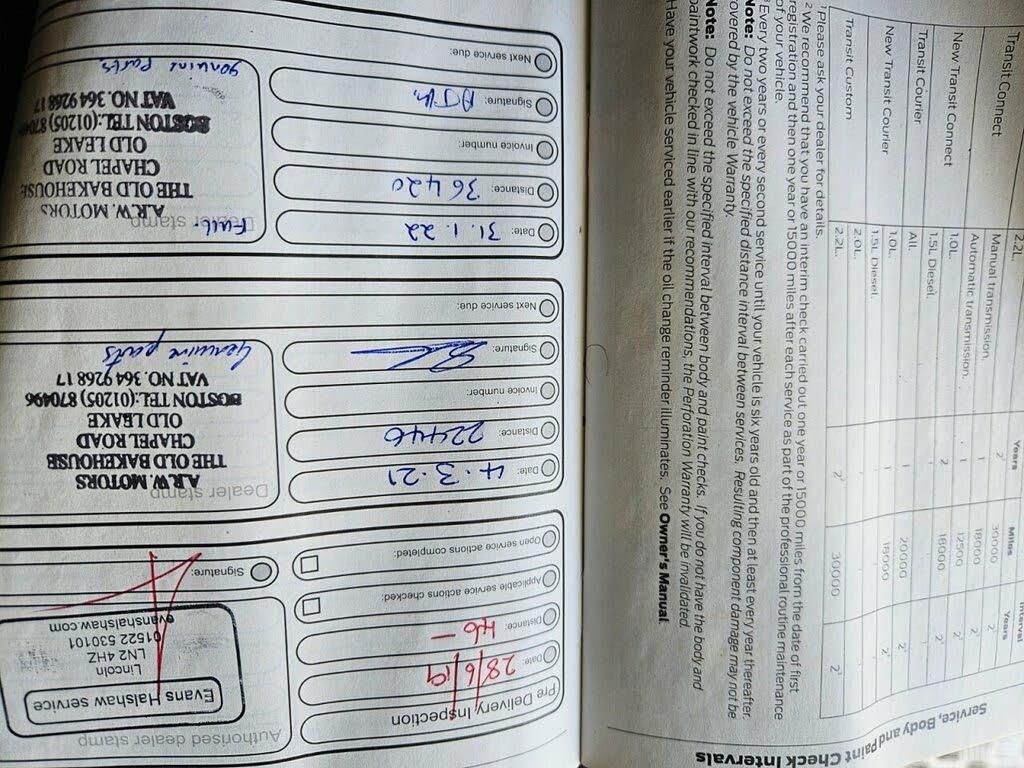 Pre Delivery Inspection
Date: 28/6/19
Distance: 46 —
Applicable service actions checked:
Open service actions completed:
Authorised dealer stamp
Evans Halshaw service
Lincoln
LN2 4HZ
01522 530101
evanshalshaw.com
Signature:
Date: 4.3.21
Distance: 22440
Invoice number:
Signature:
Next service due:
Dealer stamp
A.R.W. MOTORS
THE OLD BAKEHOUSE
CHAPEL ROAD
OLD LEAKE
BOSTON TEL:(01205) 870496
VAT NO. 364 9268 17
Genuine parts
Date: 31.1.22
Distance: 36420
Invoice number:
Signature:
Next service due:
Full.
Dealer stamp
A.R.W. MOTORS
THE OLD BAKEHOUSE
CHAPEL ROAD
OLD LEAKE
BOSTON TEL:(01205)
VAT NO. 364 9268 17
genuine parts.
Service, Body and Paint Check Intervals
Interval
Years Miles Years
Transit Connect 2.2L.
Manual transmission. 30000
Automatic transmission. 1 18000
New Transit Connect 1.0L. 1 12500
1.5L Diesel. 2 18000
Transit Courier All. 1 20000
New Transit Courier 1.0L. 1 18000
1.5L Diesel.
Transit Custom 2.0L.
2.2L. 2¹ 30000 2¹
¹Please ask your dealer for details.
² We recommend that you have an interim check carried out one year or 15000 miles from the date of first
registration and then one year or 15000 miles after each service as part of the professional routine maintenance
of your vehicle.
Every two years or every second service until your vehicle is six years old and then at least every year thereafter.
Note: Do not exceed the specified distance interval between services. Resulting component damage may not be
covered by the vehicle Warranty.
Note: Do not exceed the specified interval between body and paint checks. If you do not have the body and
paintwork checked in line with our recommendations, the Perforation Warranty will be invalidated.
Have your vehicle serviced earlier if the oil change reminder illuminates. See Owner's Manual.